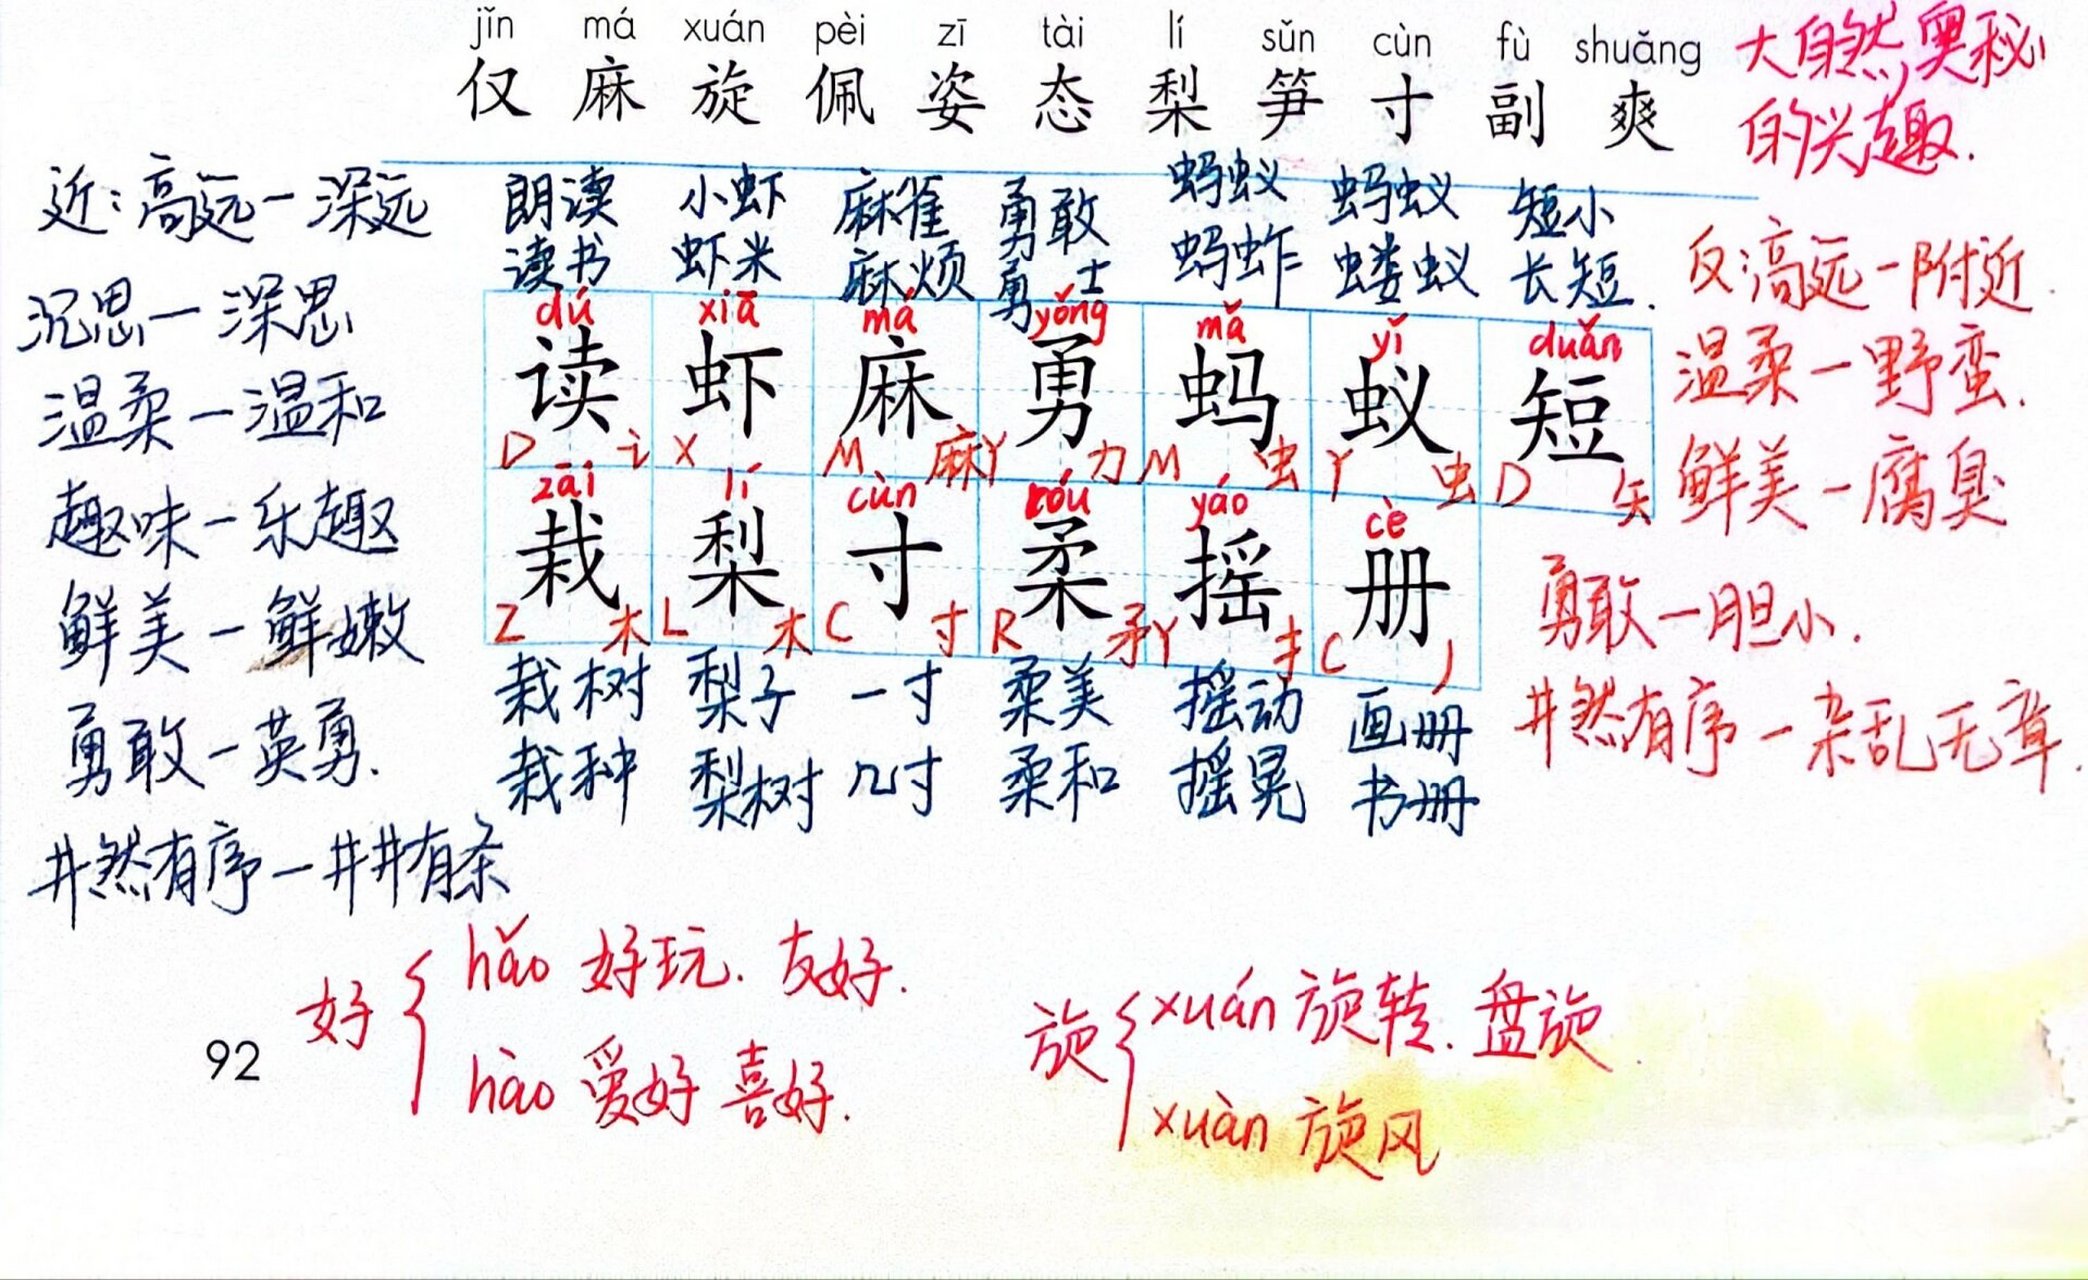 jǐn má xuán pèi zī tài lí sǔn cùn fù shuǎng
仅 麻 旋 佩 姿 态 梨 笋 寸 副 爽
大自然,奥秘
的兴趣.
近:高远一深远
沉思一深思
温柔一温和
趣味一乐趣
鲜美一鲜嫩
勇敢一英勇.
井然有序一井井有条
朗读 小虾 麻雀 勇敢 蚂蚁 蚂蚁 短小
读书 虾米 麻烦 勇士 蚂蚱 蝼蚁 长短.
dú xiā má yǒng mǎ yǐ duǎn
读 虾 麻 勇 蚂 蚁 短
D 讠 X M 麻 Y 力 M 虫 Y 虫 D 矢
zāi lí cùn róu yáo cè
栽 梨 寸 柔 摇 册
Z 木 L 木 C 寸 R 矛 Y 扌 C 丿
栽树 梨子 一寸 柔美 摇动 画册
栽种 梨树 几寸 柔和 摇晃 书册
反:高远一附近.
温柔一野蛮.
鲜美一腐臭
勇敢一胆小.
井然有序一杂乱无章.
好 { hǎo 好玩. 友好.
hào 爱好 喜好.
旋 { xuán 旋转. 盘旋.
xuàn 旋风
92